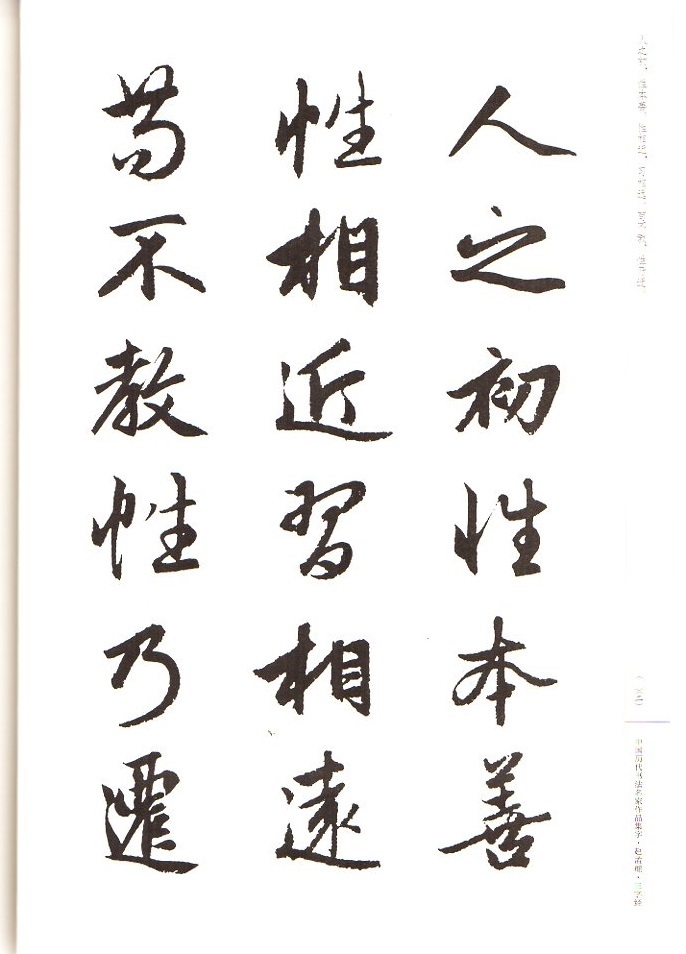 人之初性本善
性相近習相遠
苟不教性乃遷
人之初，性本善。性相近，习相远。苟不教，性乃迁。
中国历代书法名家作品集字·赵孟頫·三字经